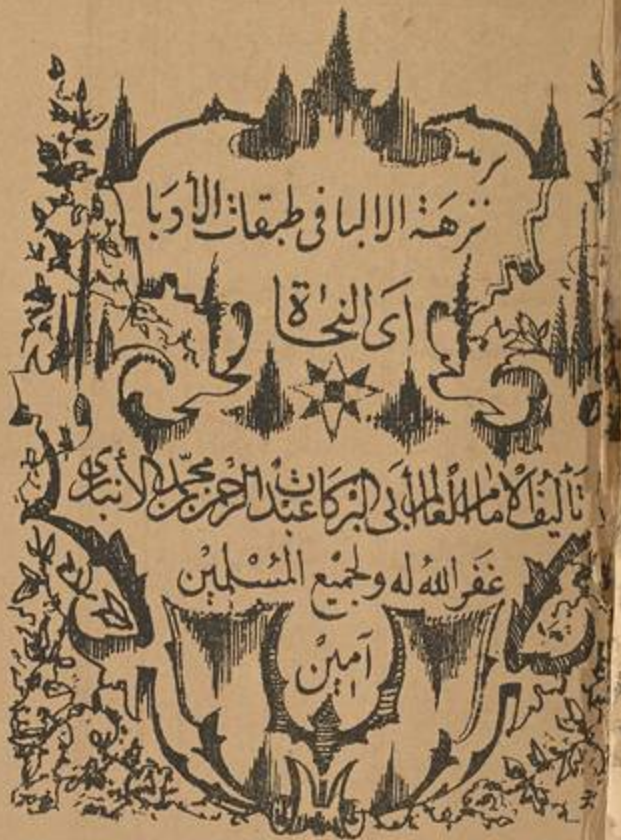 نزهة الالبا فى طبقات الأدبا
اى النحاة
تأليف الامام العالم أبى البركات عبد الرحمن محمد الأنبارى
غفر الله له ولجميع المسلمين
آمين